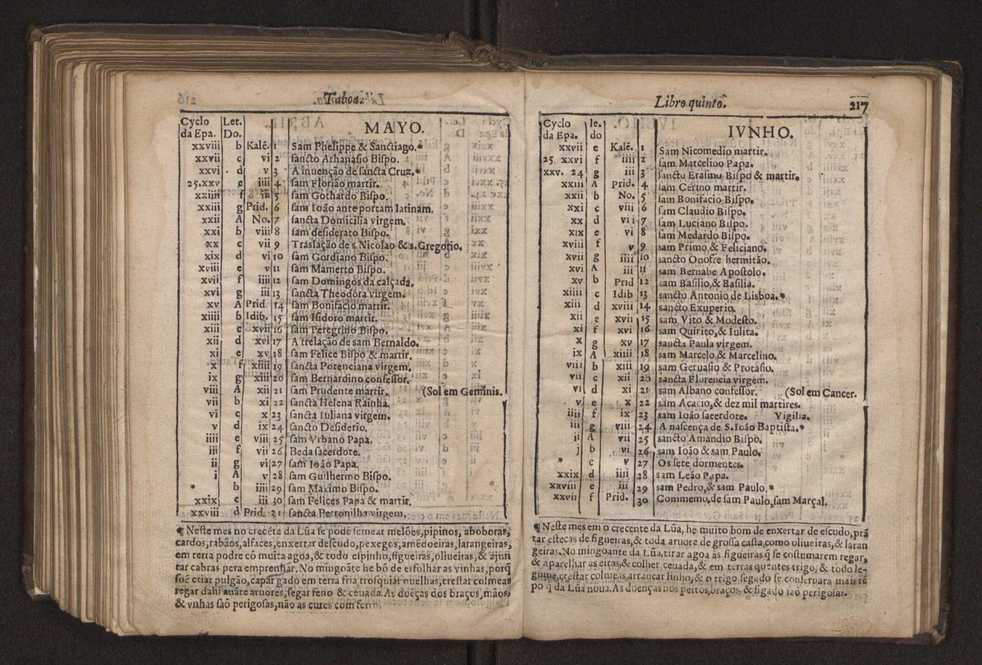 Taboa.
Cyclo Let. MAYO.
da Epa. Do.
xxviii b Kalē. 1 Sam Phelippe & Sanctiago.*
xxvii c vi 2 sancto Athanasio Bispo.
xxvi d v 3 A inuenção de sancta Cruz.*
25.xxv e iiii 4 sam Florião martir.
xxiiii f iii 5 sam Gothardo Bispo.
xxiii g Prid. 6 sam Ioão ante portam latinam.
xxii A No. 7 sancta Domicilia virgem.
xxi b viii 8 sam desiderato Bispo.
xx c vii 9 Traslação de s. Nicolao & s. Gregorio.
xix d vi 10 sam Gordiano Bispo.
xviii e v 11 sam Mamerto Bispo.
xvii f iiii 12 sam Domingos da calçada.
xvi g iii 13 sancta Theodora virgem.
xv A Prid. 14 sam Bonifacio martir.
xiiii b Idib. 15 sam Isidoro martir.
xiii c xvii 16 sam Peregrino Bispo.
xii d xvi 17 A trelação de sam Bernaldo.
xi e xv 18 sam Felice Bispo & martir.
x f xiiii 19 sancta Potenciana virgem.
ix g xiii 20 sam Bernardino confessor.
viii A xii 21 sam Prudente martir. (Sol em Geminis.
vii b xi 22 sancta Helena Rainha.
vi c x 23 sancta Iuliana virgem.
v d ix 24 sancto Desiderio.
iiii e viii 25 sam Vrbano Papa.
iii f vii 26 Beda sacerdote.
ii g vi 27 sam Ioão Papa.
i A v 28 sam Guilhermo Bispo.
* b iiii 29 sam Maximo Bispo.
xxix c iii 30 sam Felices Papa & martir.
xxviii d Prid. 31 sancta Petronilha virgem.
¶ Neste mes no crecēte da Lūa se pode semear melões, pipinos, aboboras,
cardos, ribãos, alfaces, enxertar descudo, pexegos, amēdoeiras, larangeiras,
em terra podre cō muita agoa, & todo espinho, figueiras, oliueiras, & ajun
tar cabras pera emprenhar. No mingoāte he bō de esfolhar as vinhas, porq̃
soē criar pulgão, capar gado em terra fria trosquiar ouelhas, crestar colmeas
regar dahi auāte aruores, segar feno & ceuada. As doēças dos braços, mãos
& vnhas saõ perigosas, não as cures com ferro
Libro quinto. 217
Cyclo le. IVNHO.
da Epa. do
xxvii e Kalē. 1 Sam Nicomedio martir.
25. xxvi f iiii 2 sam Marcelino Papa.
xxv. 24 g iii 3 sancto Erasmo Bispo & martir.*
xxiii A Prid. 4 sam Cerino martir.
xxii b No. 5 sam Bonifacio Bispo.
xxi c viii 6 sam Claudio Bispo.
xx d vii 7 sam Luciano Bispo.
xix e vi 8 sam Medardo Bispo.
xviii f v 9 sam Primo & Feliciano.
xvii g iiii 10 sancto Onofre hermitão.
xvi A iii 11 sam Bernabe Apostolo.
xv b Prid 12 sam Basilio, & Basilia.
xiiii c Idib 13 sancto Antonio de Lisboa.*
xiii d xviii 14 sancto Exuperio.
xii e xvii 15 sam Vito & Modesto.
xi f xvi 16 sam Quirito, & Iulita.
x g xv 17 sancta Paula virgem.
ix A xiiii 18 sam Marcelo & Marcelino.
viii b xiii 19 sam Geruasio & Protasio.
vii c xii 20 sancta Florencia virgem.
vi d xi 21 sam Albano confessor. (Sol em Cancer.
v e x 22 sam Acacio, & dez mil martires.
iiii f ix 23 sam Ioão sacerdote. Vigilia.
iii g viii 24 A nascença de S. Ioão Baptista.*
ii A vii 25 sancto Amandio Bispo.
j b vi 26 sam Ioão & sam Paulo.
* c v 27 Os sete dormentes.
xxix d iiii 28 sam Leão Papa.
xxviii e iii 29 sam Pedro, & sam Paulo.*
xxvii f Prid. 30 Commemo. de sam Paulo, sam Marçal.
¶ Neste mes em o crecente da Lūa, he muito bom de enxertar de escudo, prā
tar estecas de figueiras, & toda aruore de grossa casta, como oliueiras, & laran
geiras. No mingoante da Lūa, tirar agoa às figueiras q̃ se costumarem regar,
& aparelhar as eiras, & colher ceuada, & em terras quentes trigo, & todo le-
gume, crestar colmeias, arrancar linho, & o trigo segado se conseruara mais tē
po q̃ da Lūa noua. As doenças nos peitos, braços, & figado saõ perigosas.